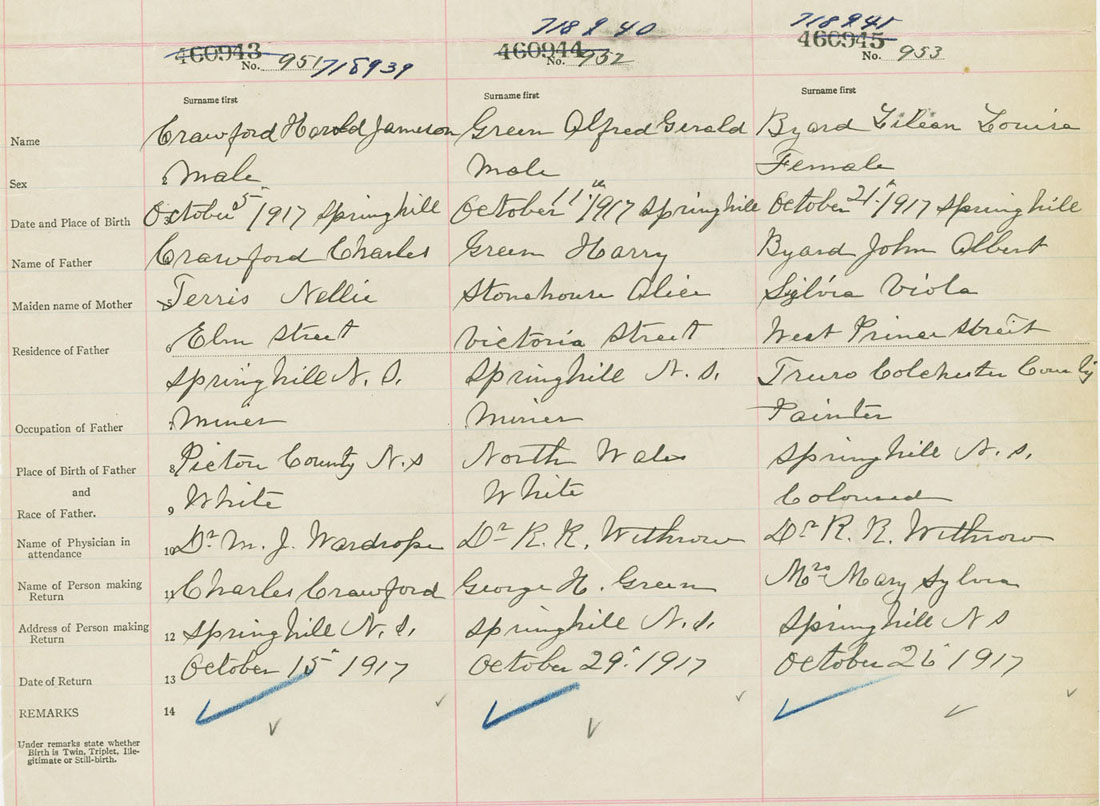 718940 718941
460943 460944 460945
No. 951 718939 No. 952 No. 953
Surname first Surname first Surname first
Name Crawford Harold Jameson Green Alfred Gerald Byard Lilean Louisa
Sex 2 Male Male Female
Date and Place of Birth 3 October 5 1917 Springhill October 11th 1917 Springhill October 21st 1917 Springhill
Name of Father Crawford Charles Green Harry Byard John Albert
Maiden name of Mother 5 Terris Nellie Stonehouse Alice Sylvia Viola
Residence of Father 6 Elm Street Victoria Street West Prince Street
Springhill N. S. Springhill N. S. Truro Colchester County
Occupation of Father 7 Miner Miner Painter
Place of Birth of Father 8 Pictou County N.S North Wales Springhill N. S.
and
Race of Father. 9 White White Coloured
Name of Physician in attendance 10 Dr M. J. Wardrope Dr R. R. Withrow Dr R. R. Withrow
Name of Person making Return 11 Charles Crawford George H. Green Mrs Mary Sylvia
Address of Person making Return 12 Springhill N. S. Springhill N. S. Springhill N S
Date of Return 13 October 15 1917 October 29 1917 October 26 1917
REMARKS 14
Under remarks state whether
Birth is Twin, Triplet, Ille-
gitimate or Still-birth.